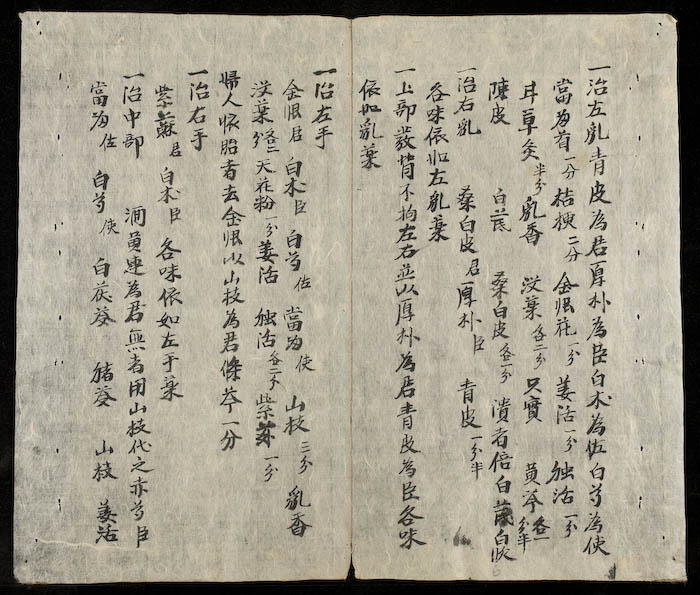 一治左乳青皮為君厚朴為臣白术為佐白芍為使
當为首一分桔梗二分金艮花一分姜活一分独活一分
甘草灸半分乳香 没葉各二分只實 黄芩各一分半
陳皮 白茋 桑白皮各一分潰者倍白
一治右乳 桑白皮君厚朴臣 青皮一分半
各味依如左乳葉
一上部發背不拘左右並以厚朴為君青皮為臣各味
依如乳葉
一治左手
金艮君 白术臣 白芍佐 當为使 山枝三分 乳香
没葉各二分天花粉一分姜活 独活各二分紫苏一分
婦人怀胎者去金艮以山枝為君條芩一分
一治右手
紫蘇君 白术臣 各味依如左手葉
一治中部 連為君無者用山枝代之赤芍臣
當为佐 白芍使 白茯苓 猪苓 山枝 姜活